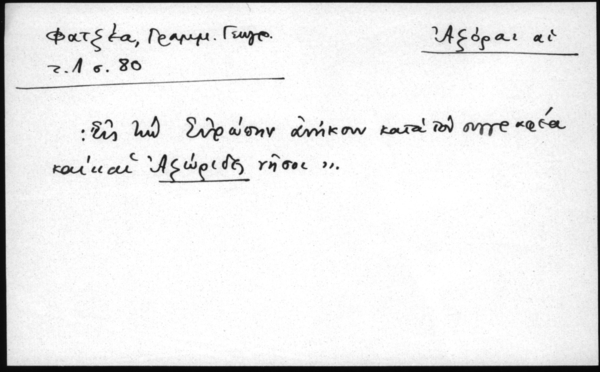 Φατζέα, Γραμμ. Γεωγρ.
τ.1 σ. 80
Ἀζόραι αἱ
: Εἰς τὴν Εὐρώπην ἀνήκουν κατὰ τὸν συγγραφέα
καὶ "αἱ Ἀζώριδες νῆσοι".